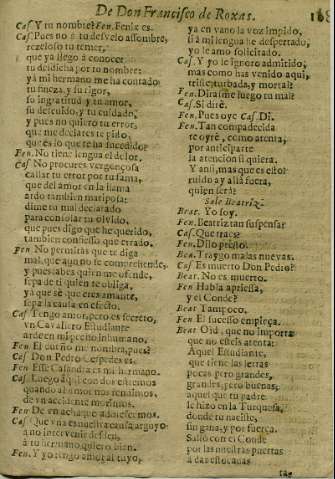 De Don Francisco de Roxas.
Cas. Y tu nombre? Fen. Fenix es.
Cas. Pues no a tu desvelo assombre,
rezeloso tu temer,
que ya llego a conocer
tu desdicha por tu nombre:
ya mi hermano me ha contado
tu fineza, y su rigor,
su ingratitud, y tu amor,
su descuido, y tu cuidado;
y pues no quiero tu error,
que me declares te pido,
que es lo que te ha sucedido?
Fen. No tiene lengua el dolor.
Cas. No procures vergonçosa
callar tu error por tu fama,
que del amor en la llama
ardo tambien mariposa:
dime tu mal declarado
para consolar tu olvido,
que pues digo que he querido,
tambien confiesso que he errado.
Fen. No permitas que te diga
mal, que aun no le comprehende,
y pues sabes quien me ofende,
sepa de ti quien te obliga,
ya que sè que eres amante,
sepa la causa, en efecto.
Cas. Tengo amor, pero es secreto,
vn Cavallero Estudiante
arde en mi pecho inhumano.
Fen. El dueño me nombra, pues?
Cas. Don Pedro Cespedes es.
Fen. Esse Casandra es mi hermano.
Cas. Luego aqui con dos estremos
quando al amor nos rendimos,
de vn accidente morimos.
Fen. De vn achaque adolecemos.
Cas. Que vna es nuestra causa arguyo:
a no intervenir desden,
a tu hermano quiero bien.
Fen. Y yo tengo amor al tuyo,
ya en vano la voz impido,
si à mi lengua he despertado,
yo le amo solicitado.
Cas. Y yo le ignoro admitido,
mas como has venido aqui,
triste, turbada, y mortal?
Fen. Dirasme luego tu mal?
Cas. Si dirè.
Fen. Pues oye Cas. Di.
Fen. Tan compadecida
te oyrè, como atenta,
por anticiparte
la atencion si quiera.
Y assi, mas que es esto!
ruido ay allà fuera,
quien serà?
Sale Beatriz.
Beat. Yo soy.
Fen. Beatriz tan suspensa?
Cas. Que traes?
Fen. Dilo presto.
Bea. Traygo malas nuevas.
Cas. Es muerto Don Pedro?
Beat. No es muerto.
Fen. Habla apriessa,
y el Conde?
Beat. Tampoco.
Fen. El sucesso empieça.
Beat. Oid, que no importa
que no estèis atenta:
Aquel Estudiante,
que tiene las letras
pocas, pero grandes,
grandes, pero buenas,
aquel que tu padre
le hizo en la Turquesa,
donde tu naciste,
sin gana, y por fuerça.
Saliò con el Conde
por las nuestras puertas
à dar estocadas